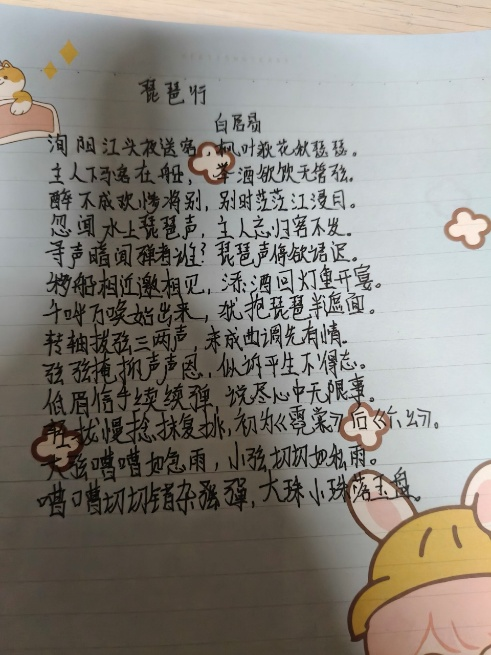 琵琶行
白居易
洵阳江头夜送客,枫叶荻花秋瑟瑟。
主人下马客在船,举酒欲饮无管弦。
醉不成欢惨将别,别时茫茫江浸月。
忽闻水上琵琶声,主人忘归客不发。
寻声暗问弹者谁?琵琶声停欲语迟。
移船相近邀相见,添酒回灯重开宴。
千呼万唤始出来,犹抱琵琶半遮面。
转轴拨弦三两声,未成曲调先有情。
弦弦掩抑声声思,似诉平生不得志。
低眉信手续续弹,说尽心中无限事。
轻拢慢捻抹复挑,初为《霓裳》后《六幺》。
大弦嘈嘈如急雨,小弦切切如私雨。
嘈嘈切切错杂弹,大珠小珠落玉盘。